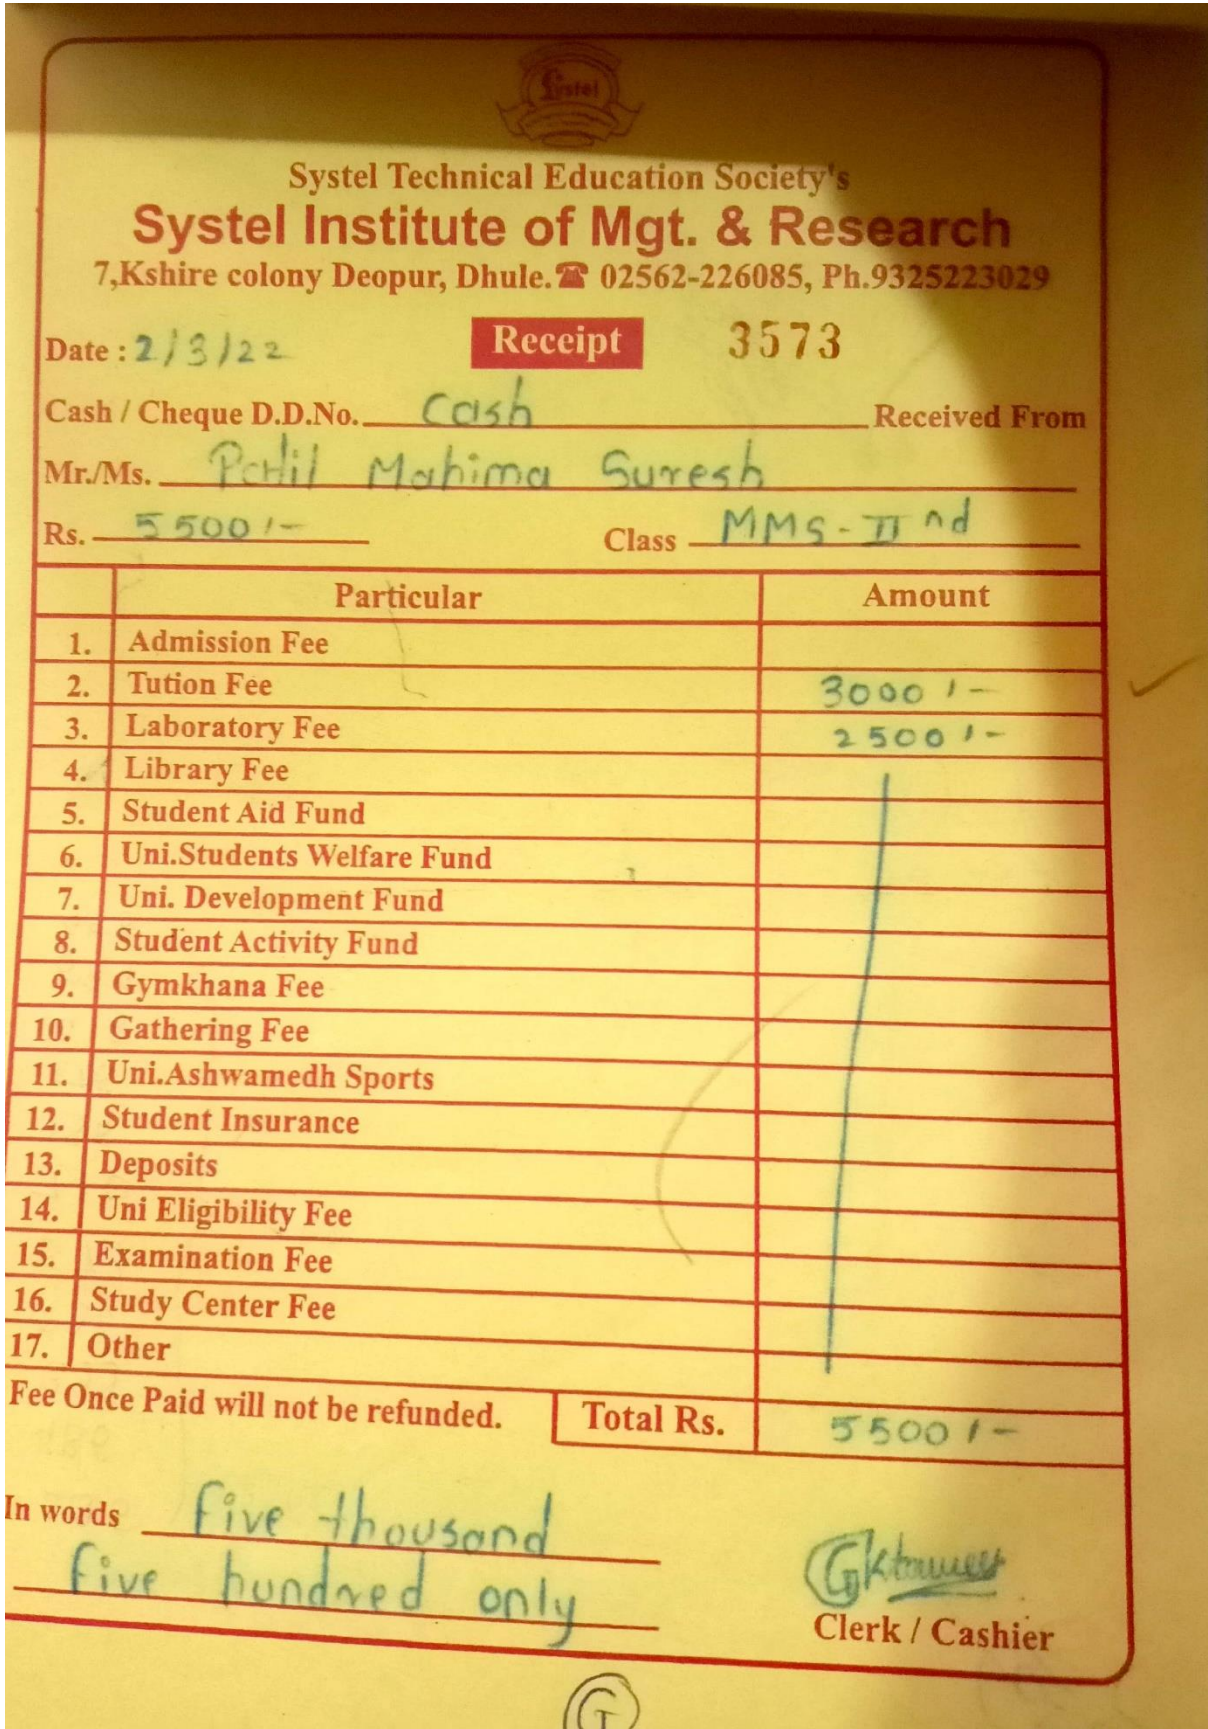 Systel
Systel Technical Education Society's
Systel Institute of Mgt. & Research
7,Kshire colony Deopur, Dhule.☎ 02562-226085, Ph.9325223029
Date : 2/3/22 Receipt 3573
Cash / Cheque D.D.No. Cash Received From
Mr./Ms. Patil Mahima Suresh
Rs. 5500/- Class MMS-IInd
Particular Amount
1. Admission Fee
2. Tution Fee 3000/-
3. Laboratory Fee 2500/-
4. Library Fee
5. Student Aid Fund
6. Uni.Students Welfare Fund
7. Uni. Development Fund
8. Student Activity Fund
9. Gymkhana Fee
10. Gathering Fee
11. Uni.Ashwamedh Sports
12. Student Insurance
13. Deposits
14. Uni Eligibility Fee
15. Examination Fee
16. Study Center Fee
17. Other
Fee Once Paid will not be refunded. Total Rs. 5500/-
In words five thousand
five hundred only
Clerk / Cashier